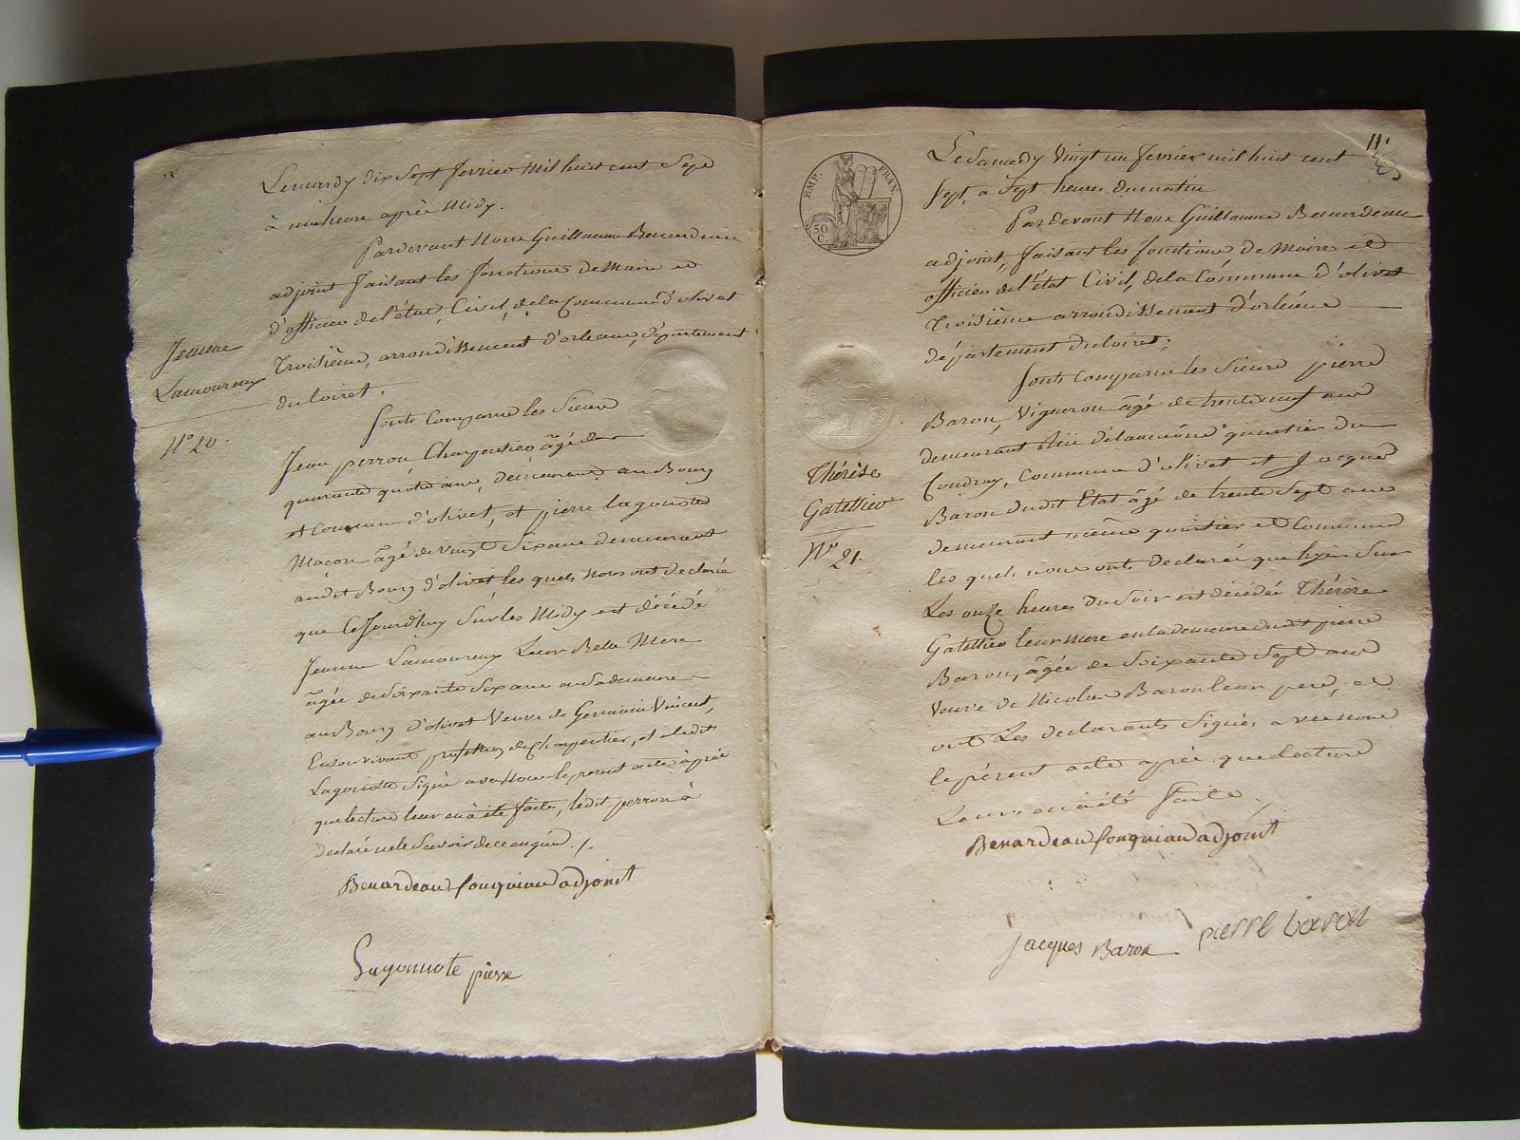 Le mardy dix Sept fevrier Mil huit cent Sept
à une heure après Midy.
Pardevant Nous Guillaume Benardeau
adjoint faisant les fonctions de Maire et
d'officier de l'état Civil, de la Commune d'olivet
Troisième, arrondissement d'orleans, département
du loiret.
Jeanne
Lamoureux
N° 20.
Sont Comparus les Sieurs
Jean perron Charpentier âgé de
quarante quatre ans, demeurant au Bourg
et Commune d'olivet, et pierre lagonotte
Macon âgé de vingt Six ans demeurant
audit Bourg d'olivet les quels nous ont declaré
que Cejourd'huy Sur les Midy est décédé
Jeanne Lamoureux Leur Belle Mere
âgée de Soixante Six ans en Sa demeure
au Bourg d'olivet Veuve de Germain Vincent,
En Son vivant profession de Charpentier, et a ledit
Lagonotte Signé avec Nous le present acte après
que lecture leur en à été faite, ledit perron à
declaré ne le Savoir de ce enquis ./.
Benardeau fouqueau adjoint
Lagonnote pierre
11.
EMP. FRAN.
50 C
Le Samedy Vingt un fevrier mil huit cent
Sept, a Sept heures du matin
Pardevant Nous Guillaume Benardeau
adjoint, faisant les fonctions de Maire et
officier de l'état Civil, de la Commune d'olivet
Troisième arrondissement d'orléans
département du loiret;
Sont comparus les Sieurs pierre
Baron, Vigneron âgé de trente neuf ans
demeurant quartier du
Coudray, Commune d'olivet et Jacques
Baron dudit Etat âgé de trente Sept ans
demeurant même quartier et Commune
les quels nous ont declaré que hyer Sur
Les onze heures du Soir est décédée Thérèse
Gatellier leur mere en la demeure dudit pierre
Baron, âgée de Soixante Sept ans
Veuve de Nicolas Baron leur pere, et
ont Les declarants Signés avec nous
le présent acte après que lecture
Leur en à été faite.
Thérèse
Gatellier
N° 21.
Benardeau fouqueau adjoint
jacques Baron pierre baron